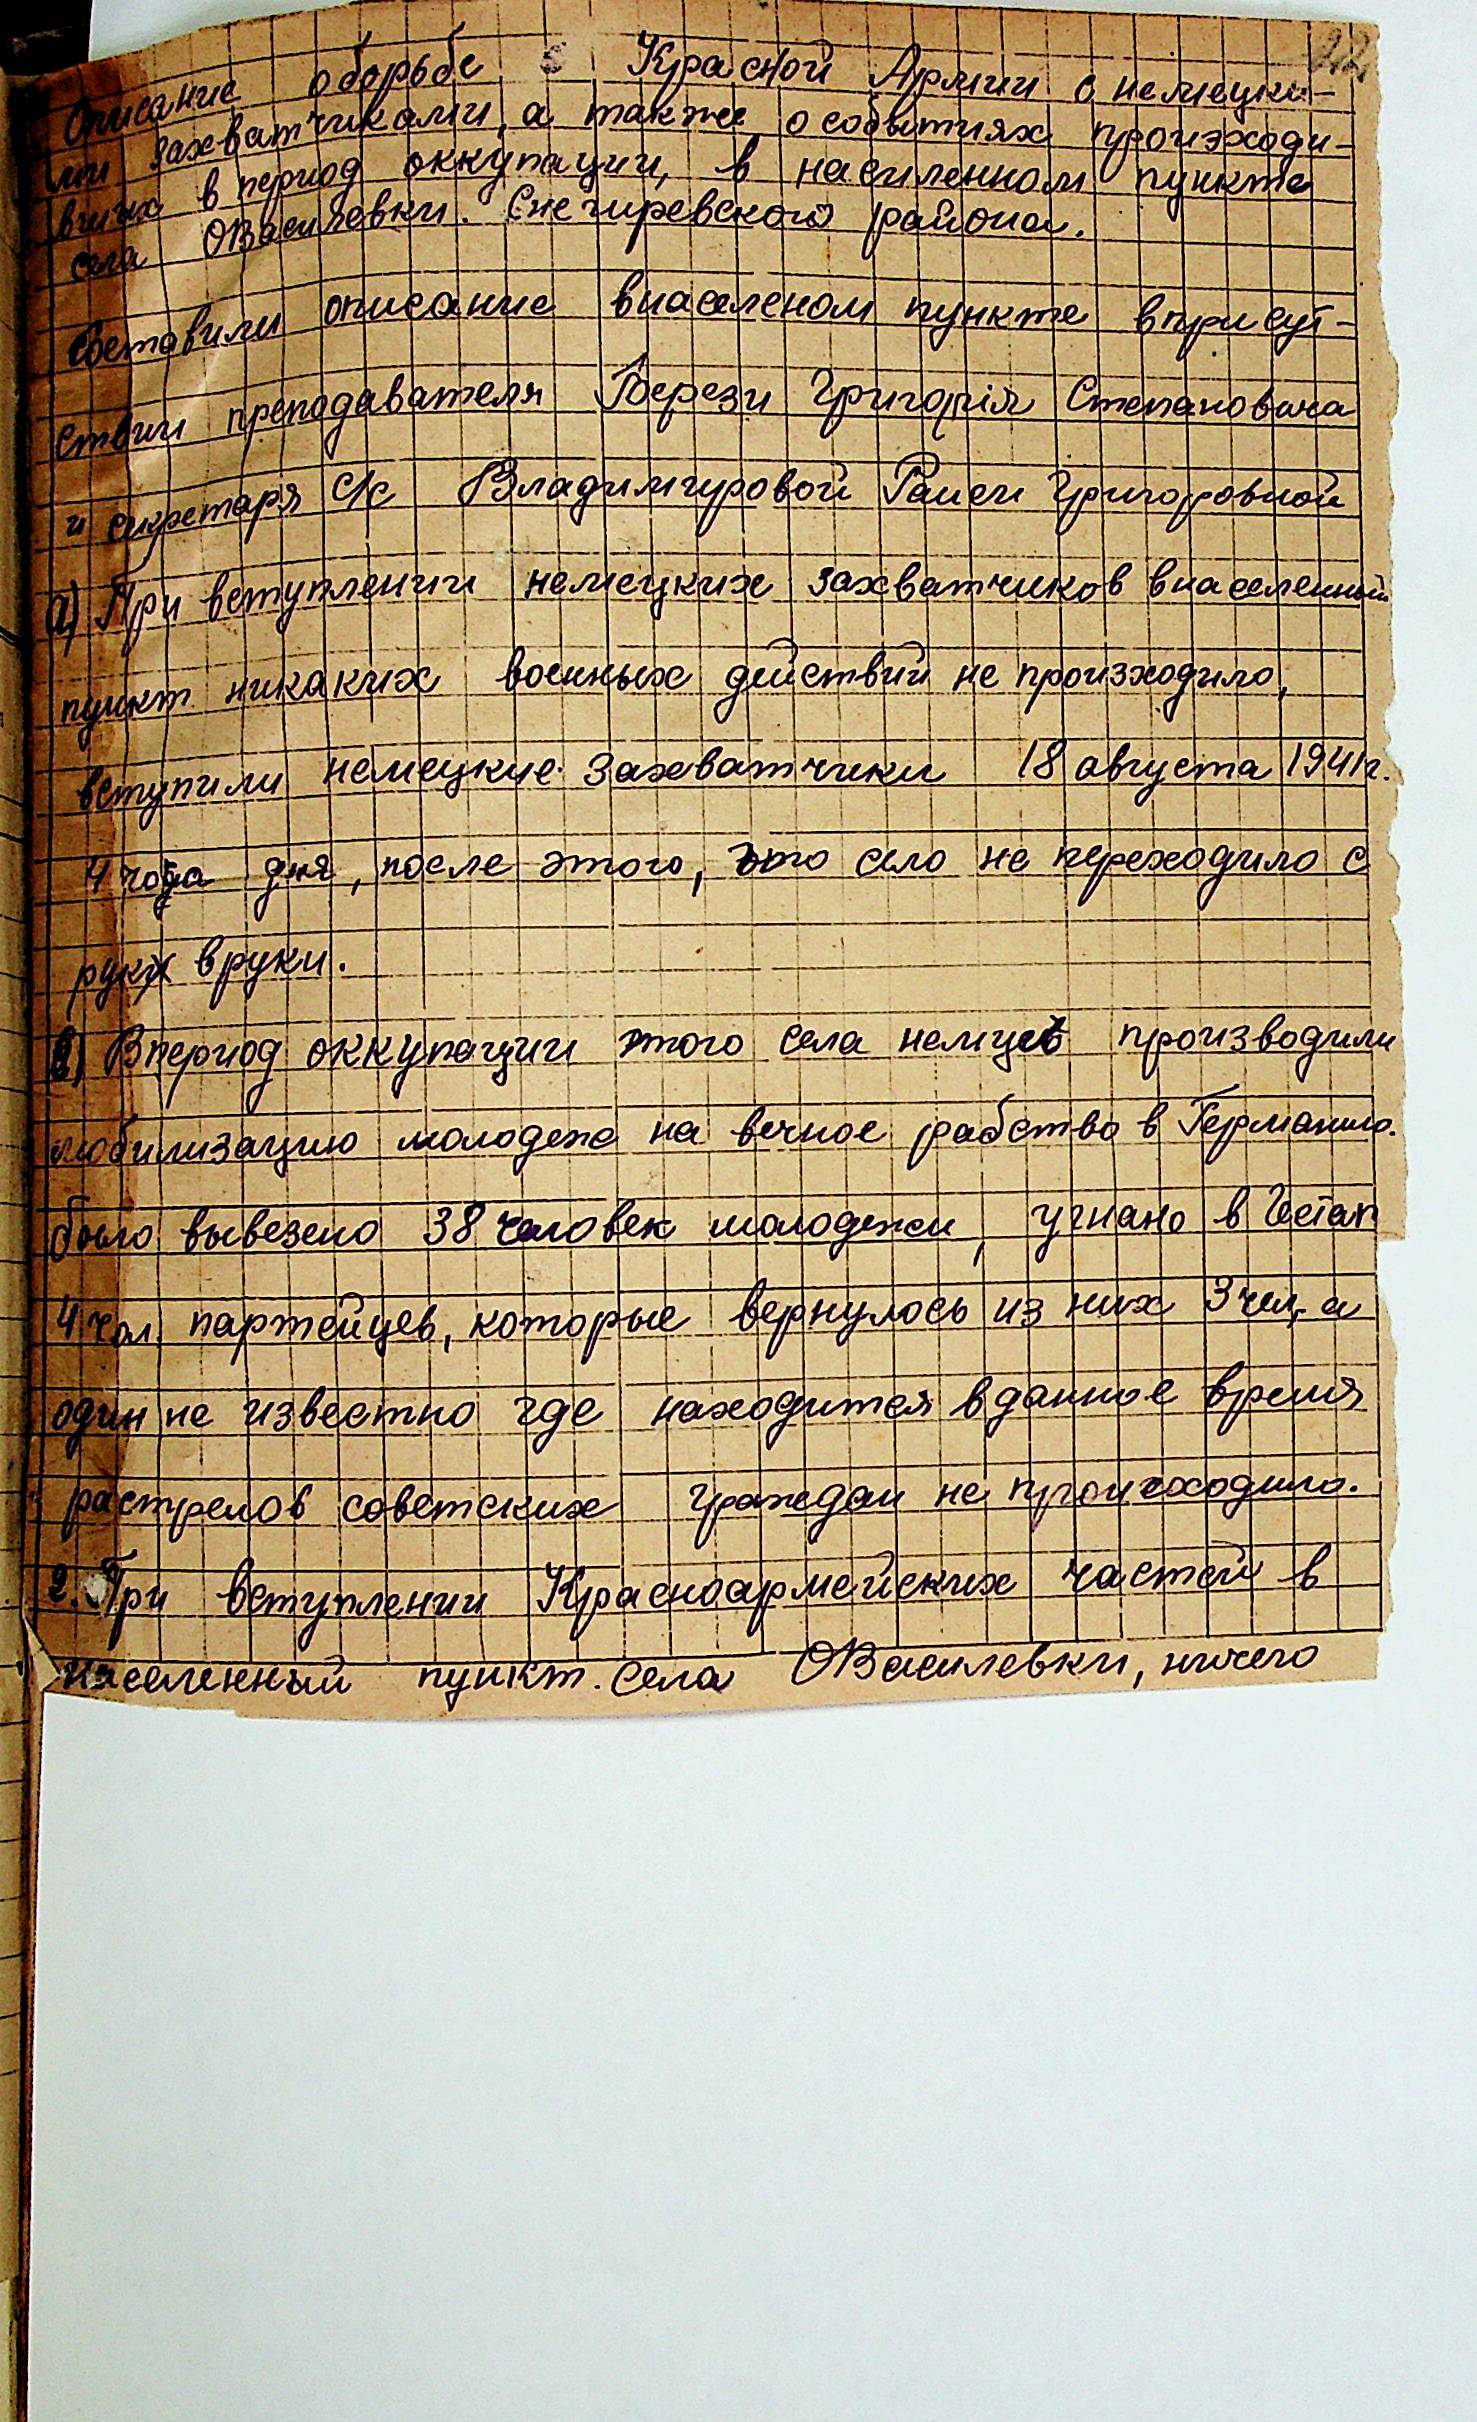 22
Описание о борьбе Красной Армии с немецки-
ми захватчиками, а также о событиях произходи-
вших в период оккупации, в насиленном пункте
села ОВасиловки. Снегиревского района.
Составили описание внаселеном пункте вприсут-
ствии преподавателя Берези Григорія Степановича
и секретаря с/с Владимировой Раиси Григоровной
а) При вступлении немецких захватчиков внаселенный
пункт никаких военных действий не произходило,
вступили немецкие захватчики 18 августа 1941 г.
4 часа дня, после этого, это село не переходило с
руки вруки.
в) Впериод оккупации этого села немцы производили
мобилизацию молодеже на вечное рабство в Германию.
было вывезено 38 человек молодежи, угнано в Гестап
4 чол. партейцев, которые вернулось из них 3 чел, а
один не известно где находится вданное время
растрелов советских граждан не происходило.
2. При вступлении Красноармейских частей в
населенный пункт. села ОВасилевки, ничего